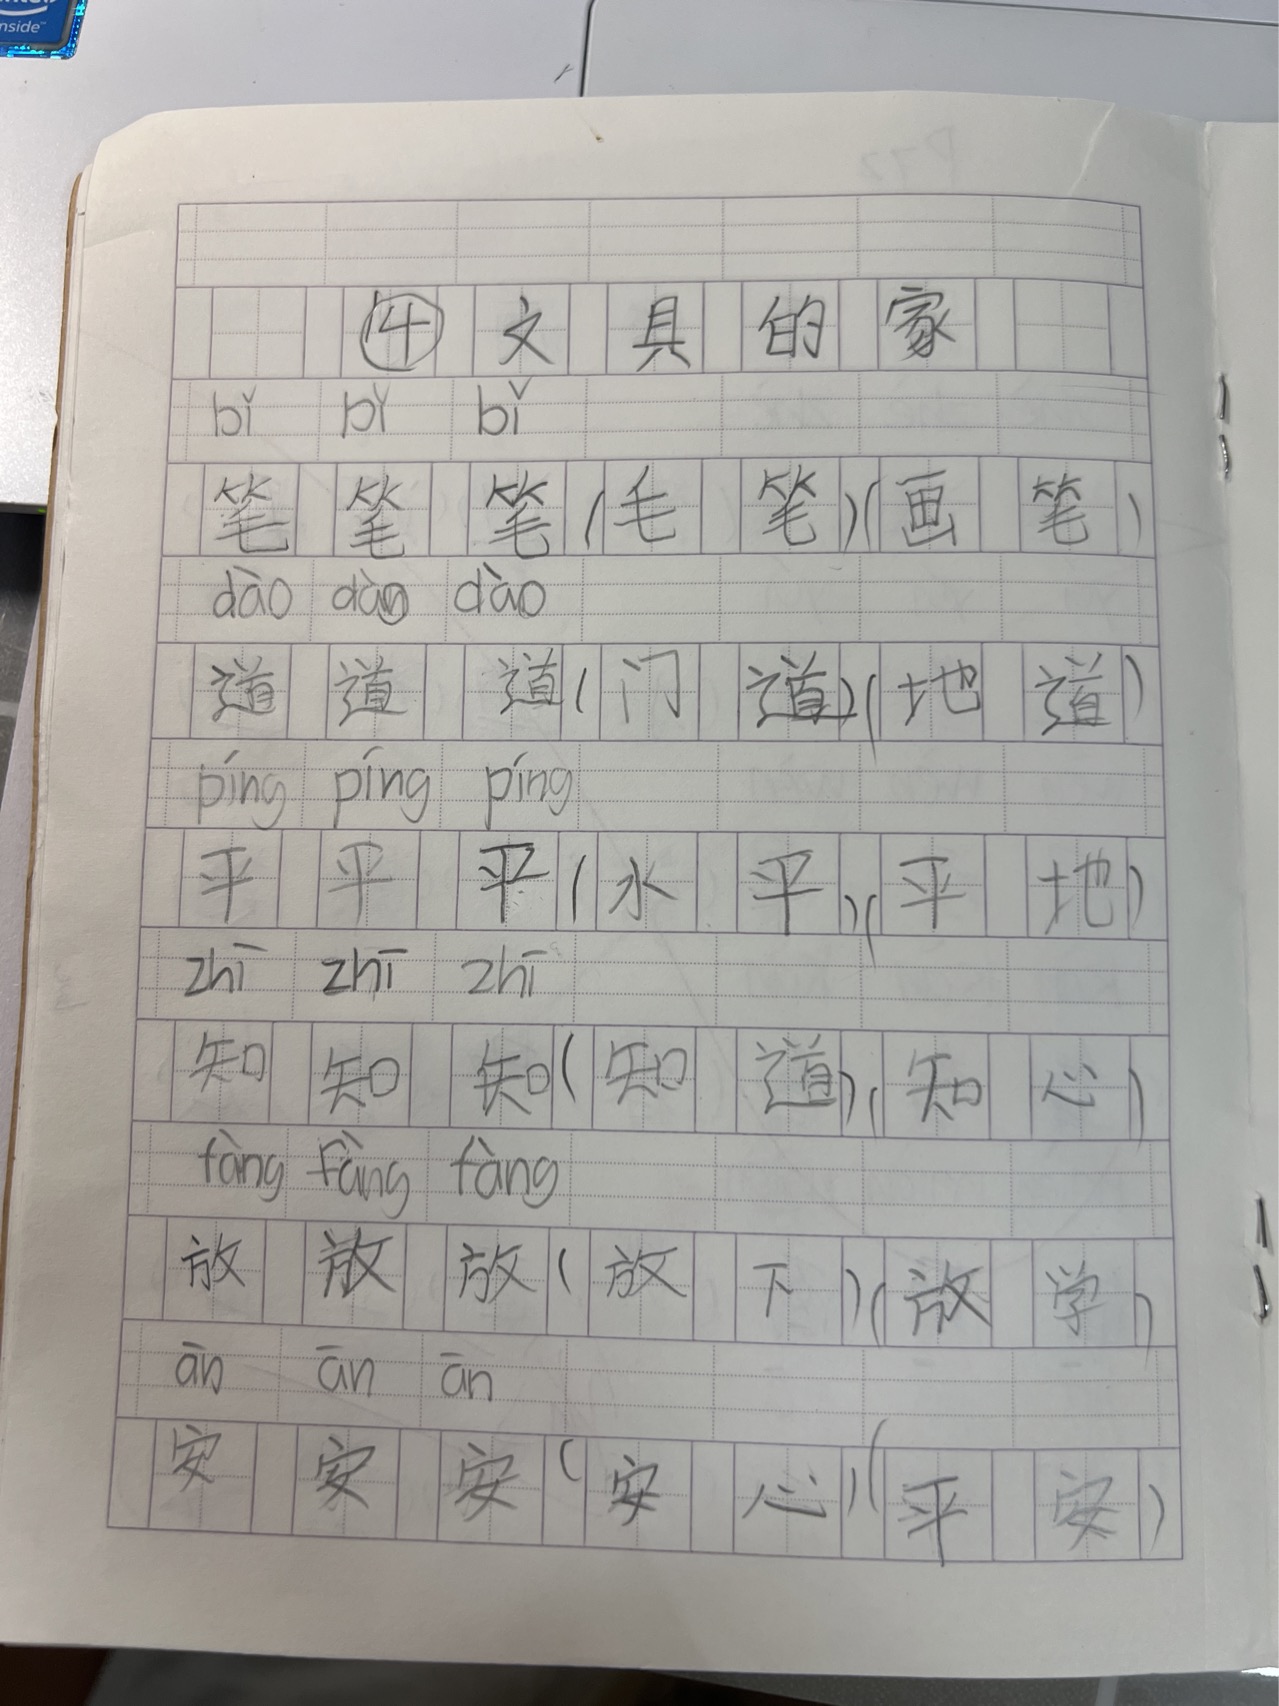 inside™
④ 文具的家
bǐ bǐ bǐ
笔 笔 笔 (毛笔)(画笔)
dào dào dào
道 道 道 (门道)(地道)
píng píng píng
平 平 平 (水平)(平地)
zhī zhī zhī
知 知 知 (知道)(知心)
fàng fàng fàng
放 放 放 (放下)(放学)
ān ān ān
安 安 安 (安心)(平安)